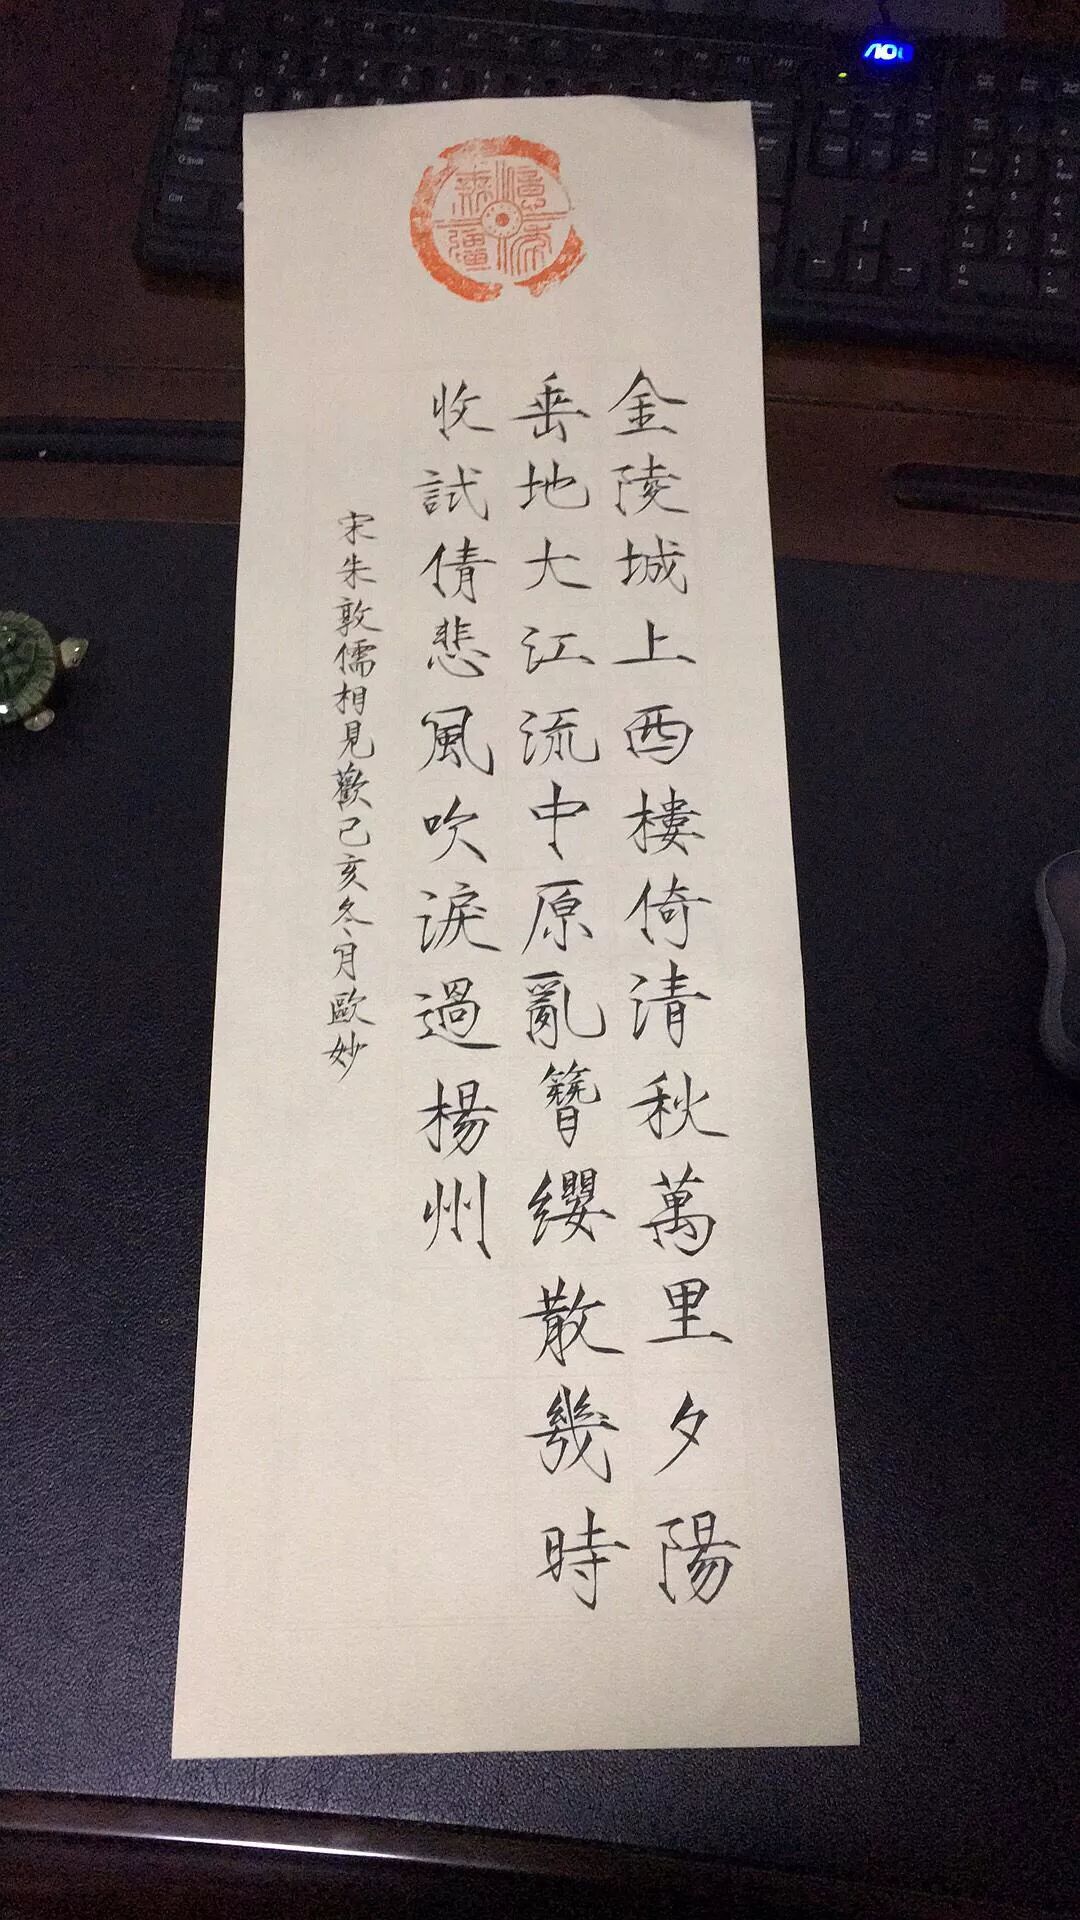 金陵城上西樓倚清秋萬里夕陽
垂地大江流中原亂簪纓散幾時
收試倩悲風吹淚過楊州
宋朱敦儒相見歡己亥冬月歐妙